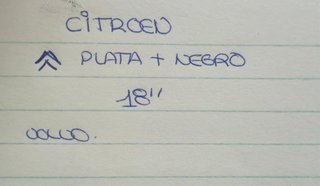 CiTROEN
PLATA + NEGRO
18"
VOLVO.